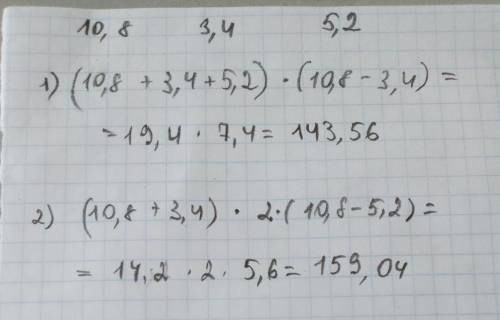 10,8 3,4 5,2
1) (10,8 + 3,4+5,2) · (10,8-3,4) =
= 19,4 · 7,4 = 143,56
2) (10,8 + 3,4) · 2·(10,8-5,2) =
= 14,2 · 2 · 5,6 = 159,04